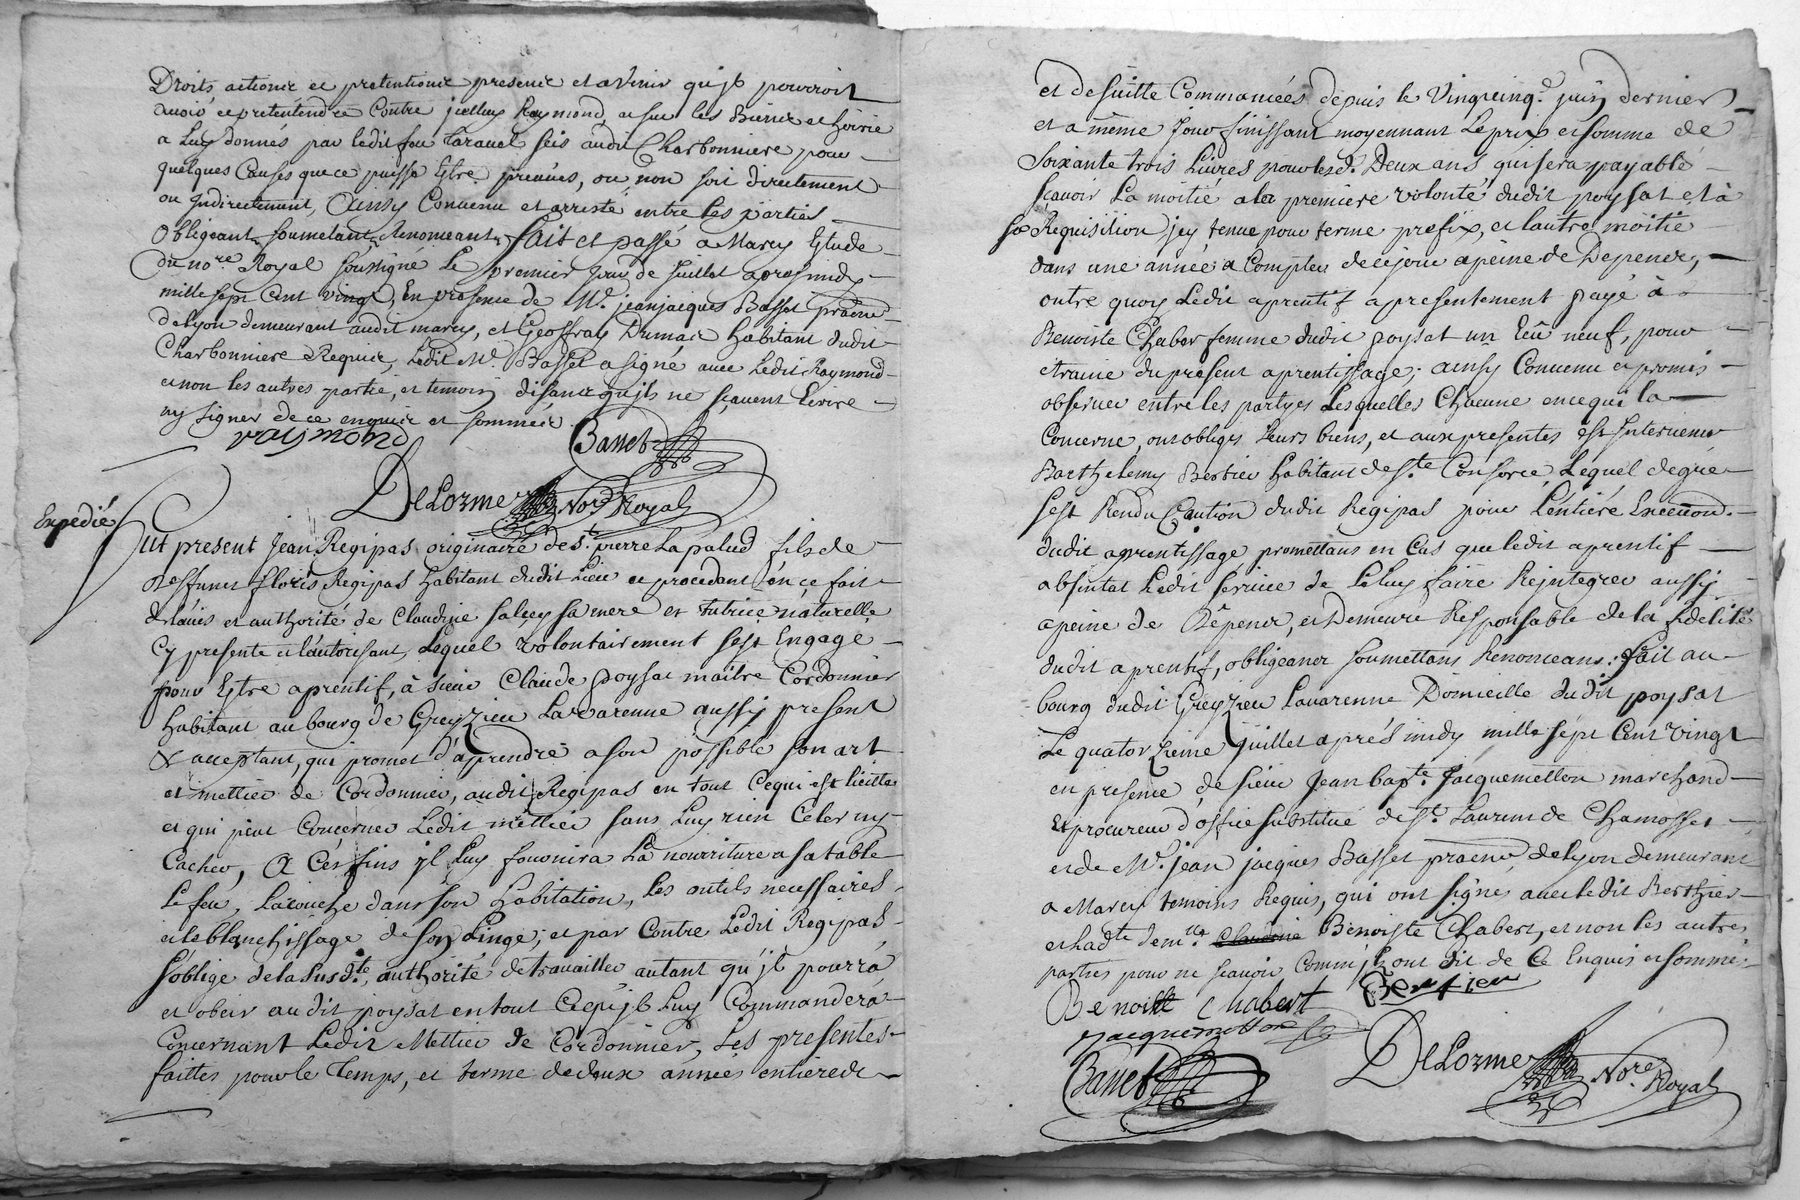 Droits actions et pretentions presens et avenir qu'jl pourroit
avoir et pretetendre Contre jcelluy Raymond, et sur les Biens et hoirie
a Luy donnés par ledit feu taravel scis audit Charbonniere pour
quelques Causes que ce puisse Estre preuües, ou non soit directement
ou Jndirectement, Ainsy Convenu et arresté entre les parties
Obligeant, soumetant, Renonceant, fait et passé a Marcy Etude
du no.re Royal soussigné Le premier jour de juillet apres midy
mille sept Cent vingt, En presence de M.e jean jacques Basset
de Lyon demeurant audit marcy, et Geoffray Dumas habitant dudit
Charbonniere Requis, Ledit M.e Basset a signé avec Ledit Raymond
et non les autres partie, et temoin disants qu'jls ne sçavent Ecrire
ny signer de ce enquis et sommés
raymond
Basset
DeLorme No.re Royal
Expedié
fut present Jean Regipas originaire de S.t pierre La palud fils de
deffunt floris Regipas habitant dudit Lieu et procedant en ce fait
de l'avis et authorité de Claudine salvey sa mere et tutrice naturelle
Cy presente et l'autorisant, Lequel volontairement s'est Engagé
pour Estre aprentif, à sieur Claude poysat maitre Cordonnier
habitant au bourg de Greyzieu Lavarenne aussy present
& acceptant, qui promet d'aprendre a son possible son art
et mettier de Cordonnier, audit Regipas en tout Ce qui est licitte
et qui peut Concerner Ledit mettier sans Luy rien Celer ny
Cacher, A Ces fins jl Luy fournira La nourriture a sa table
Le feu, La couche dans son habitation, Les outils necessaires,
et le blanchissage de son Linge; et par Contre Ledit Regipas
s'oblige de la susd.te authorité de travailler autant qu'jl pourra
et obeir audit poysat en tout Ce qu'jl Luy Commandera
Concernant Ledit Mettier de Cordonnier, Les presentes
faittes pour le Temps, et terme de deux années entieres
et de suitte Commancées depuis le Vingtcinq.e juin dernier
et a même jour finissant moyennant Le prix et somme de
Soixante trois Livres pour lesd. Deux ans, qui sera payable
sçavoir La moitie a la premiere volonté dudit poysat et à
sa Requisition jcy tenue pour terme prefix, et l'autre moitié
dans une année a Compter de ce jour a peine de Depens,
outre quoy Ledit aprentif a presentement payé à
Benoiste Chabert femme dudit poysat un Ecu neuf, pour
etraine du present aprentissage; ainsy Convenu et promis
observer entre les partyes Lesquelles Chacune en ce qui la
Concerne, ont obligés Leurs biens, et aux presentes est Intervenu
Barthelemy Bertier habitant de S.te Consorce, Lequel de gré
s'est Rendu Caution dudit Regipas pour L'entiére Execution
dudit aprentissage promettant en Cas que ledit aprentif
absentat Ledit service de Le luy faire Rejntegrer aussy
a peine de Dépens, et Demeure Responsable de la fidelité
dudit aprentif, obligeants soumettans Renonceans: fait au
bourg dudit Greyzieu Lavarenne Domicille dudit poysat
Le quatorzieme juillet aprés midy mille sépt Cent vingt
en presence de sieur Jean bap.te Jacquemetton marchand
Et procureur d'office substitué de S.t Laurent de Chamosset
et de M.e jean jacques Basset de Lyon demeurant
a Marcy temoins Requis, qui ont signé avec ledit Berthier
et lad.te dem.lle Claudine Benoiste Chabert, et non les autres
parties pour ne sçavoir Comm'jls ont dit de Ce Enquis et sommés
Benoitte Chabert Bertier
Jacquemetton
Basset
DeLorme No.re Royal